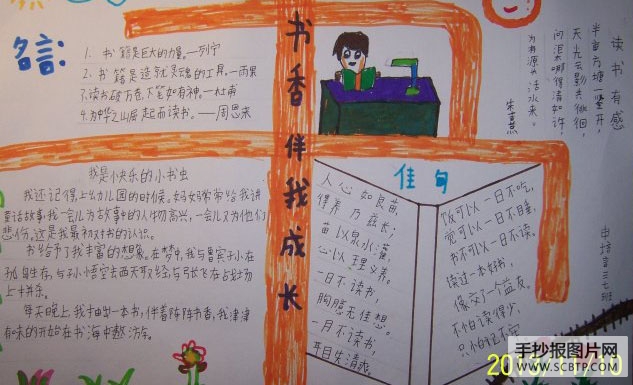 名言:
1. 书籍是巨大的力量。—列宁
2. 书籍是造就灵魂的工具。—雨果
3.读书破万卷,下笔如有神。—杜甫
4.为中华之崛起而读书。——周恩来
书香伴我成长
读书有感
半亩方塘一鉴开,
天光云影共徘徊,
问渠那得清如许,
为有源头活水来。
朱熹
我是小快乐的小书虫
我还记得上幼儿园的时候。妈妈常常给我讲
童话故事,我一会儿为故事中的人物高兴,一会儿又为他们
悲伤,这是我最初对书的认识。
书给予了我丰富的想像。在梦中,我与鲁宾孙在
孤岛生存,与孙悟空去西天取经,与马长飞在战场
上卡并杀。
每天晚上,我卡由型一本书,伴着阵阵书香,我津津
有味的开始在书海中遨游。
佳句
人心如良苗,
得养乃滋长;
苗以泉水灌,
心以理义养。
一日不读书,
胸臆无佳想。
一月不读书,
耳目失清爽。
饭可以一日不吃,
觉可以一日不睡,
书不可以一日不读。
读过一本好书,
像交了一个益友。
不怕读得少,
只怕记不牢
三七班
手抄报图片网
WWW.SCBTP.COM